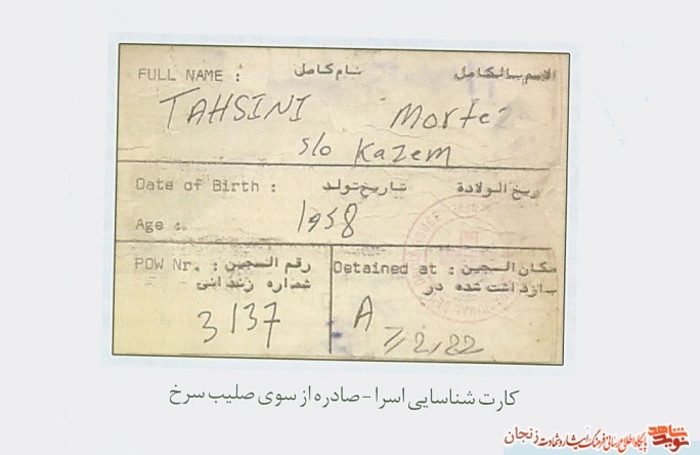 FULL NAME : نام کامل الاسم بالکامل
TAHSINI Mortez
s/o Kazem
Date of Birth : تاریخ تولد ریخ الولادة
Age : 1958
POW Nr. : رقم السجین Detained at : مکان السجین
شماره زندانی بازداشت شده در
3137 A
7/2/82
کارت شناسایی اسرا - صادره از سوی صلیب سرخ
نوید شاهد پایگاه اطلاع رسانی فرهنگ ایثار و شهادت زنجان